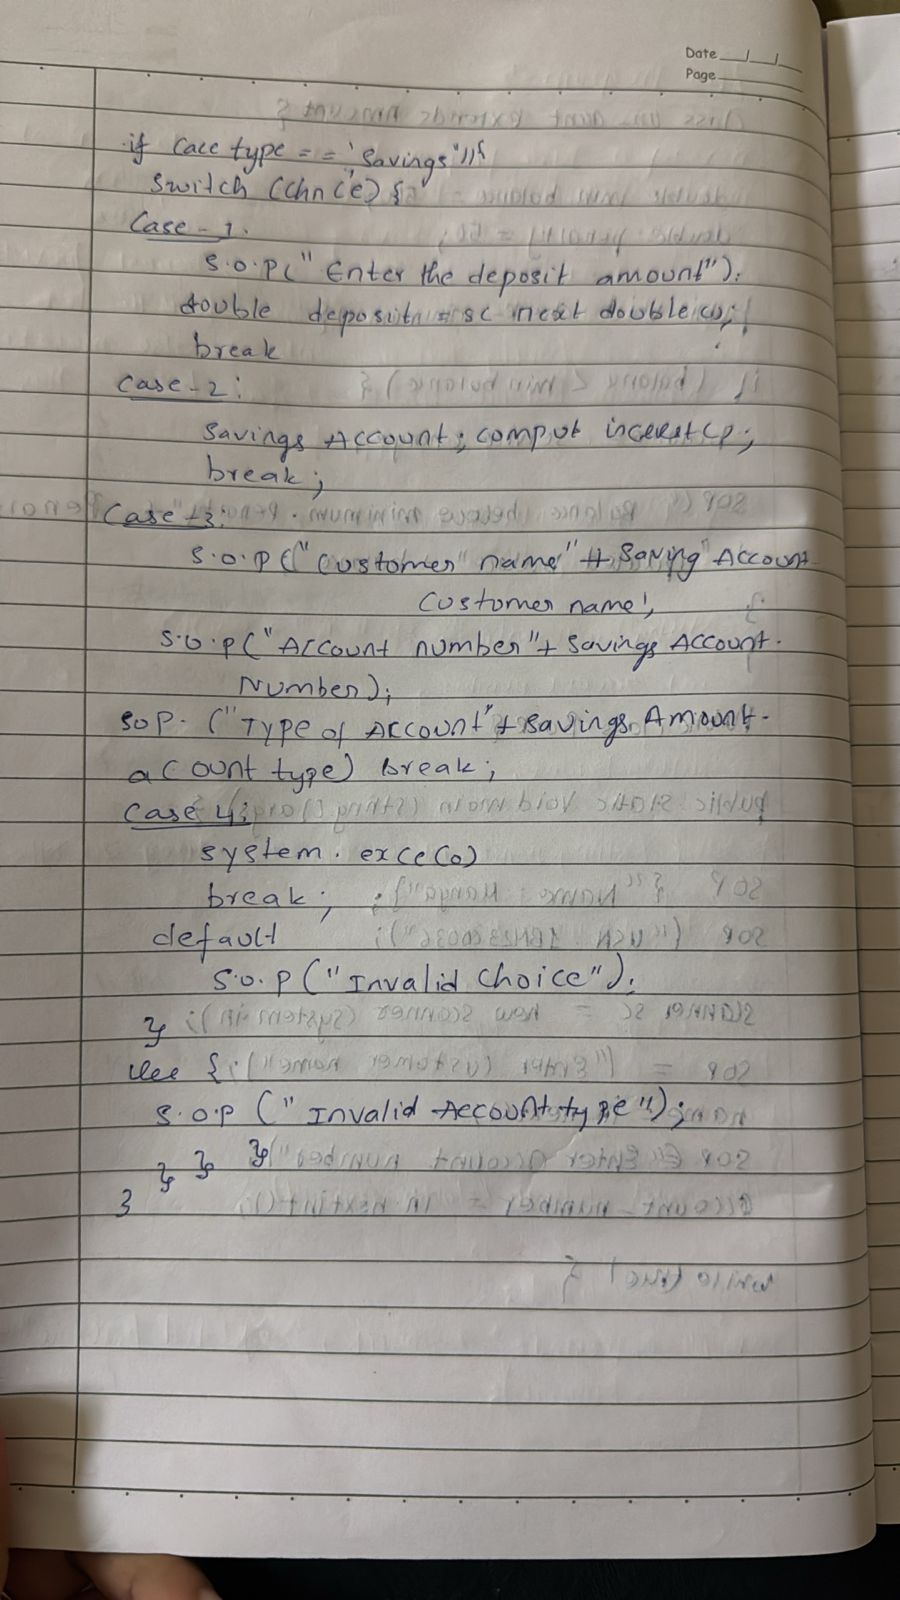 Date __/__/__
Page
if (acc type = = 'savings")){
switch (chn ce) {
Case - 1.
S.O.P(" Enter the deposit amount");
double deposit = sc next double ();
break
Case - 2:
Savings Account; comput incerest();
break;
Case - 3:
S.O.P ("Customer name" + Saving Account
Customer name;
S.O.P("Account number"+ Savings Account.
Number);
SOP. ("Type of Account"+ Savings Amount.
account type) break;
Case 4:
system. exce(0)
break;
default
S.O.P ("Invalid Choice");
}
else {
S.O.P (" Invalid Account type");
} } }
}